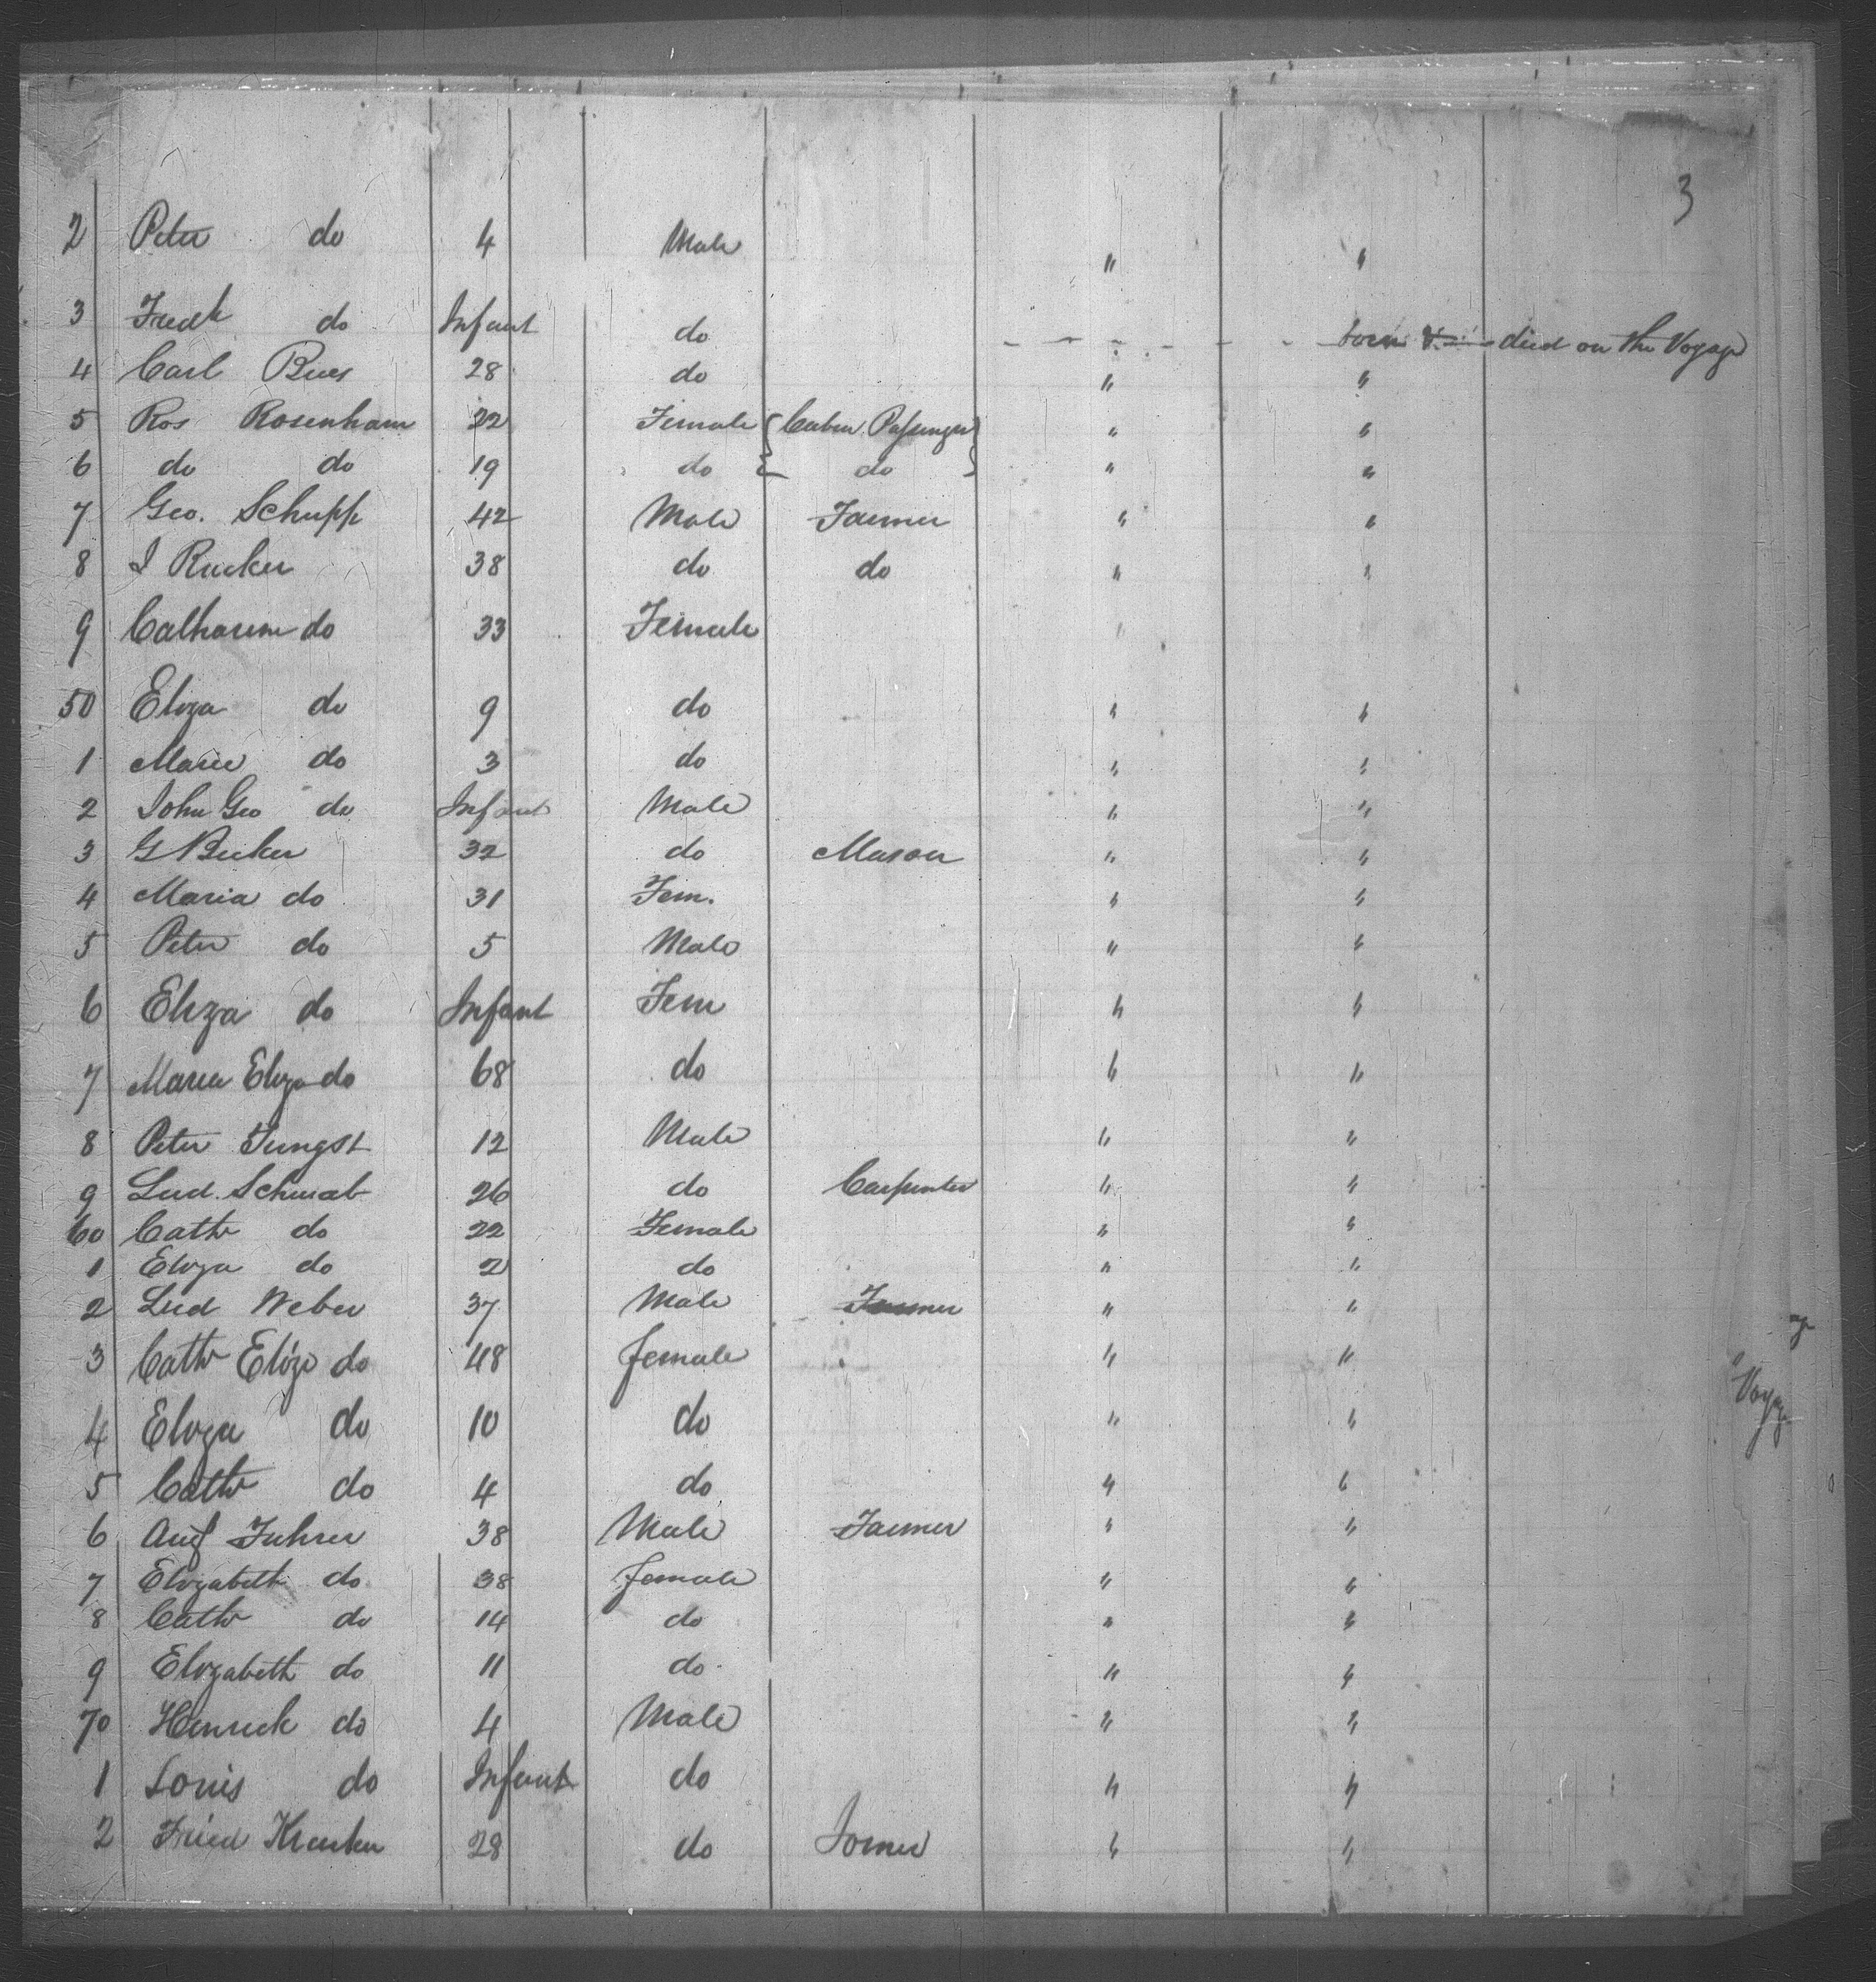 3
2 Peter do 4 Male " "
3 Fredk do Infant do born & died on the Voyage
4 Carl Bues 28 do " "
5 Ros Rosenham 22 Female Cabin Passenger " "
6 do do 19 do do " "
7 Geo. Schupp 42 Male Farmer " "
8 I Rucker 38 do do " "
9 Catharine do 33 Female "
50 Eliza do 9 do " "
1 Marie do 3 do " "
2 John Geo do Infant Male " "
3 G Becker 32 do Mason " "
4 Maria do 31 Fem. " "
5 Peter do 5 Male " "
6 Eliza do Infant Fem " "
7 Maria Eliza do 68 do " "
8 Peter Jungst 12 Male " "
9 Lud. Schwab 26 do Carpenter " "
60 Cath do 22 Female " "
1 Eliza do 2 do " "
2 Lud Weber 37 Male Farmer " "
3 Cath Eliza do 48 female " "
4 Eliza do 10 do " "
5 Cath do 4 do " "
6 Aug Fuhrer 38 Male Farmer " "
7 Elizabeth do 38 female " "
8 Cath do 14 do " "
9 Elizabeth do 11 do " "
70 Henrick do 4 Male " "
1 Louis do Infant do " "
2 Fried 28 do Joiner " "
Voyage